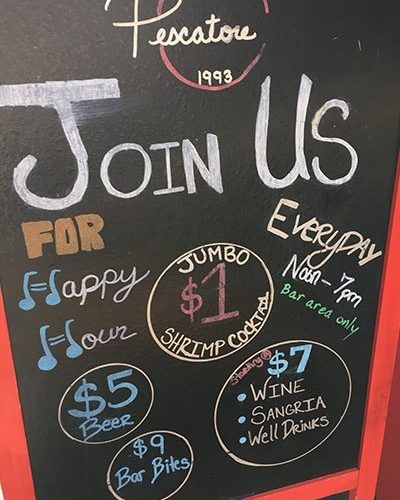 Pescatore
1993
JOIN US
FOR
Happy
Hour
EVERYDAY
Noon - 7pm
Bar area only
JUMBO
$1
SHRIMP COCKTAIL
$5
BEER
$9
Bar Bites
Starting @
$7
• WINE
• SANGRIA
• Well DRINKS